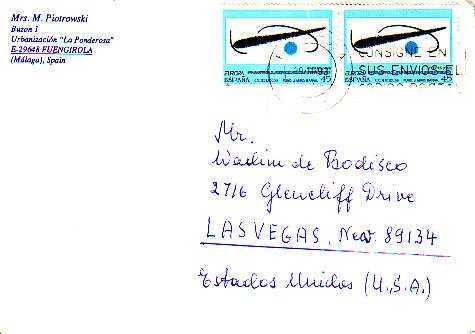 Mrs. M. Piotrowski
Buzon 1
Urbanización "La Ponderosa"
E-29648 FUENGIROLA
(Málaga), Spain
EUROPA
ESPAÑA CORREOS 45
EUROPA
ESPAÑA CORREOS 45
CONSIGNE EN
SUS ENVIOS EL
Mr.
Wadim de Bodisco
2716 Glencliff Drive
LAS VEGAS, Nev. 89134
Estados Unidos (U.S.A.)